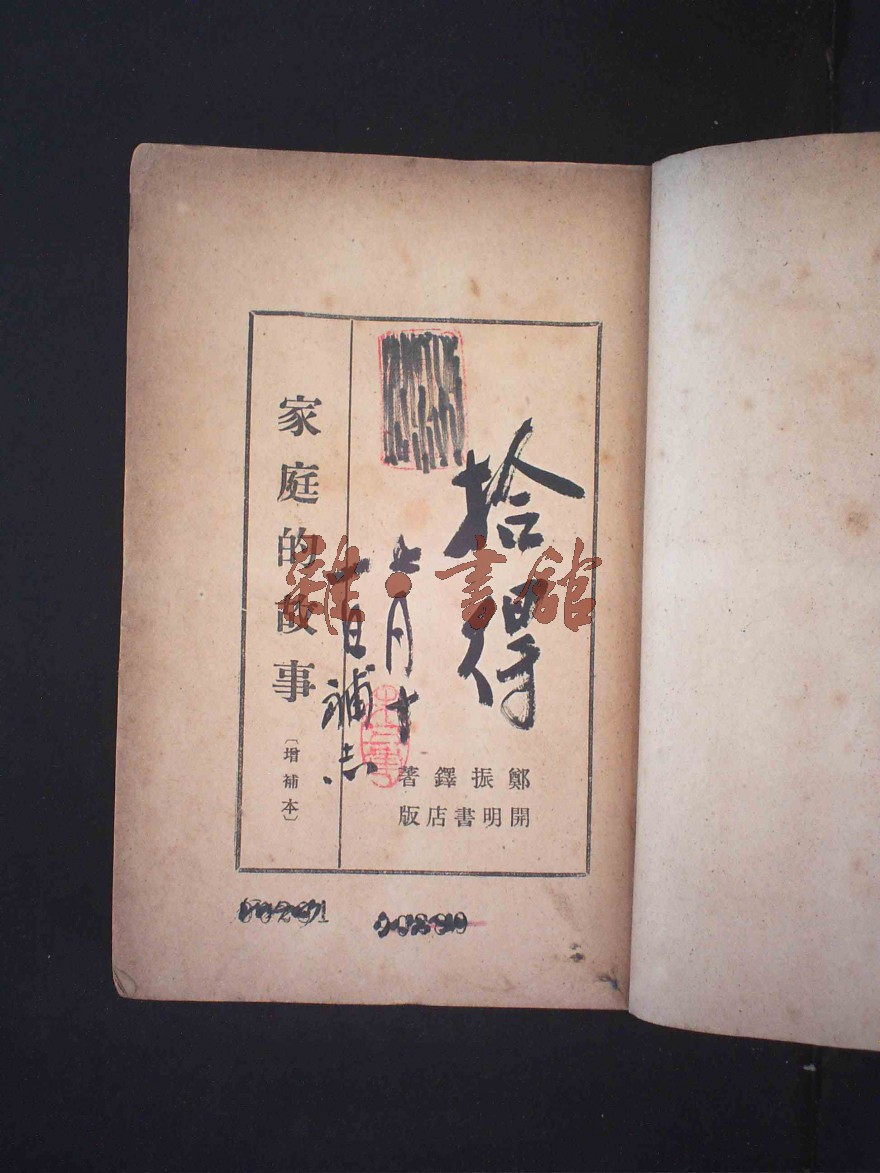 拾得
七月十
一日補志
鄭振鐸著
開明書店版
家庭的故事
〔增補本〕
雜·書館